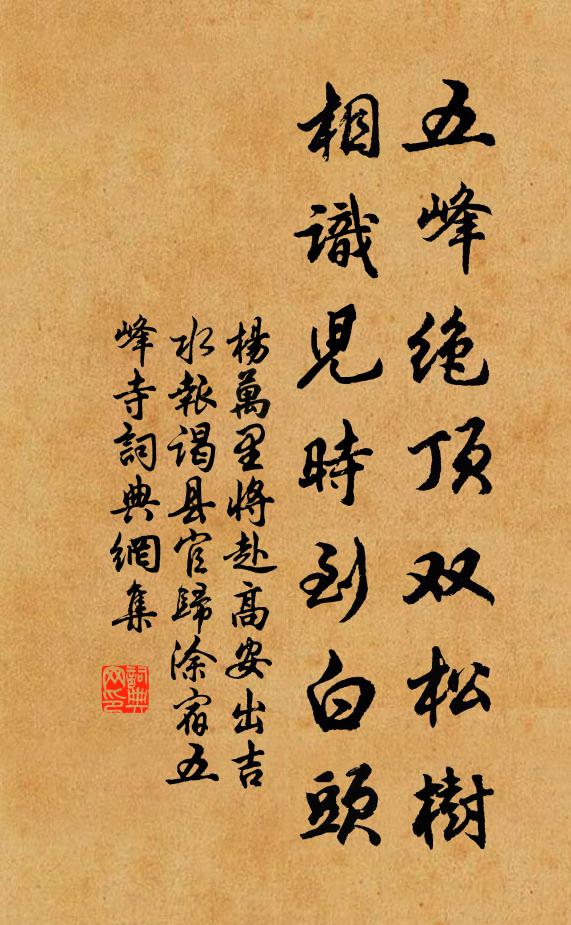 五峰绝顶双松樹
相識児時到白頭
楊萬里将赴高安出吉
水報谒县官歸涂宿五
峰寺詞典網集
詞典网印